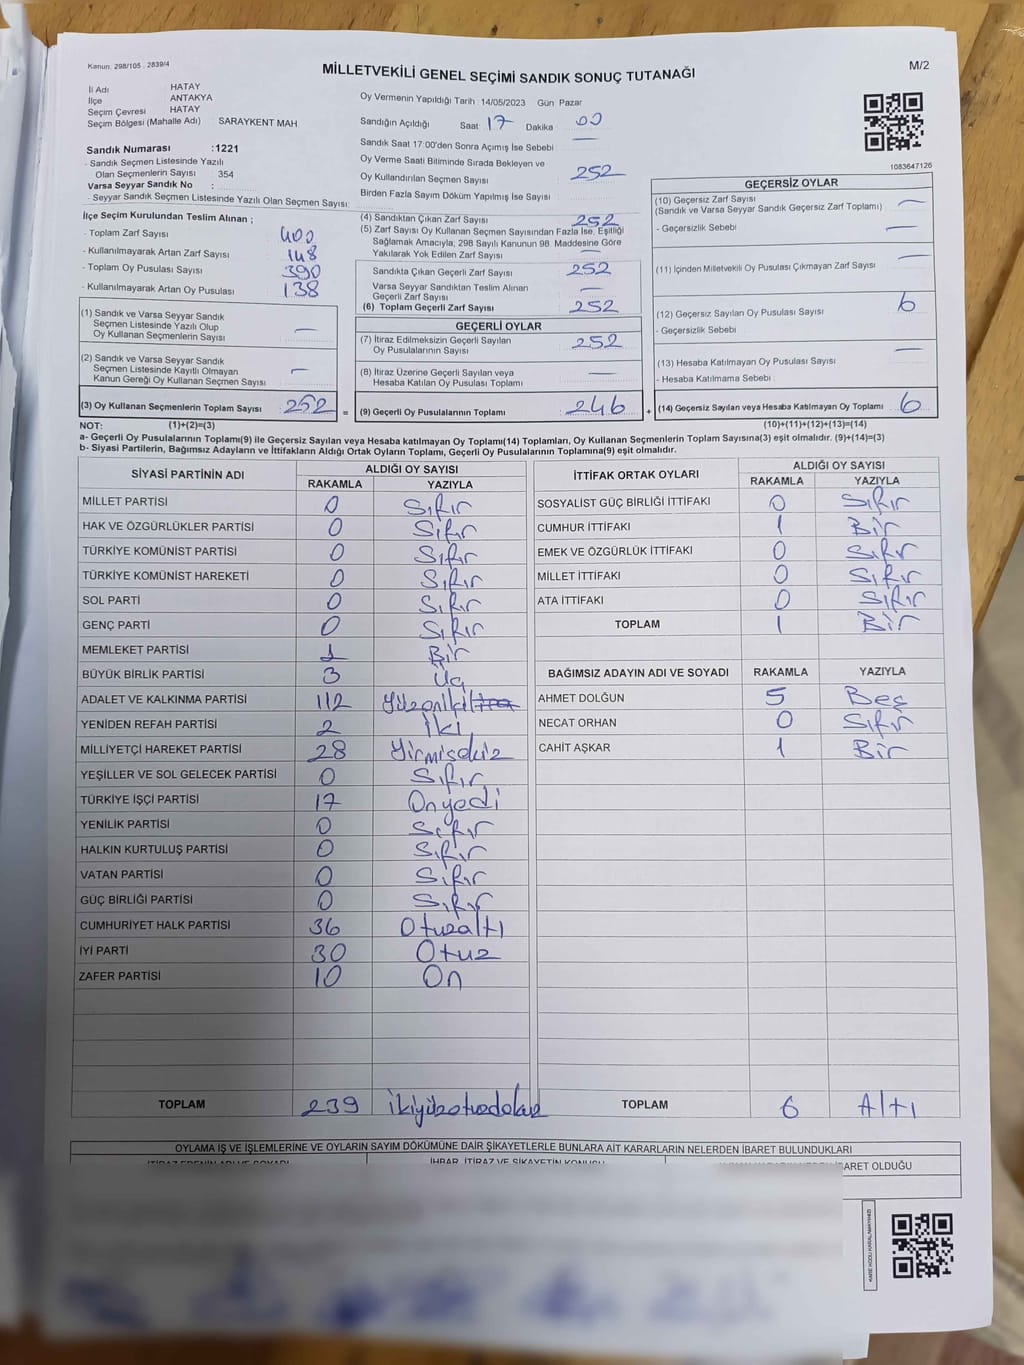 Kanun: 298/105 , 2839/4
MİLLETVEKİLİ GENEL SEÇİMİ SANDIK SONUÇ TUTANAĞI
M/2
İl Adı HATAY
İlçe ANTAKYA
Seçim Çevresi HATAY
Seçim Bölgesi (Mahalle Adı) SARAYKENT MAH
Sandık Numarası :1221
- Sandık Seçmen Listesinde Yazılı
Olan Seçmenlerin Sayısı : 354
Varsa Seyyar Sandık No :
- Seyyar Sandık Seçmen Listesinde Yazılı Olan Seçmen Sayısı:
İlçe Seçim Kurulundan Teslim Alınan ;
- Toplam Zarf Sayısı 400
- Kullanılmayarak Artan Zarf Sayısı 148
- Toplam Oy Pusulası Sayısı 390
- Kullanılmayarak Artan Oy Pusulası 138
(1) Sandık ve Varsa Seyyar Sandık
Seçmen Listesinde Yazılı Olup
Oy Kullanan Seçmenlerin Sayısı —
(2) Sandık ve Varsa Seyyar Sandık
Seçmen Listesinde Kayıtlı Olmayan
Kanun Gereği Oy Kullanan Seçmen Sayısı —
(3) Oy Kullanan Seçmenlerin Toplam Sayısı 252 =
Oy Vermenin Yapıldığı Tarih 14/05/2023 Gün Pazar
Sandığın Açıldığı Saat 17 Dakika 00
Sandık Saat 17:00'den Sonra Açımış İse Sebebi —
Oy Verme Saati Bitiminde Sırada Bekleyen ve
Oy Kullandırılan Seçmen Sayısı 252
Birden Fazla Sayım Döküm Yapılmış İse Sayısı
(4) Sandıktan Çıkan Zarf Sayısı 252
(5) Zarf Sayısı Oy Kullanan Seçmen Sayısından Fazla İse, Eşitliği
Sağlamak Amacıyla, 298 Sayılı Kanunun 98. Maddesine Göre
Yakılarak Yok Edilen Zarf Sayısı —
Sandıkta Çıkan Geçerli Zarf Sayısı 252
Varsa Seyyar Sandıktan Teslim Alınan
Geçerli Zarf Sayısı —
(6) Toplam Geçerli Zarf Sayısı 252
GEÇERLİ OYLAR
(7) İtiraz Edilmeksizin Geçerli Sayılan
Oy Pusulalarının Sayısı 252
(8) İtiraz Üzerine Geçerli Sayılan veya
Hesaba Katılan Oy Pusulası Toplamı —
(9) Geçerli Oy Pusulalarının Toplamı 246 +
1083647126
GEÇERSİZ OYLAR
(10) Geçersiz Zarf Sayısı
(Sandık ve Varsa Seyyar Sandık Geçersiz Zarf Toplamı) —
- Geçersizlik Sebebi —
(11) İçinden Milletvekili Oy Pusulası Çıkmayan Zarf Sayısı —
(12) Geçersiz Sayılan Oy Pusulası Sayısı 6
- Geçersizlik Sebebi
(13) Hesaba Katılmayan Oy Pusulası Sayısı —
- Hesaba Katılmama Sebebi
(14) Geçersiz Sayılan veya Hesaba Katılmayan Oy Toplamı 6
NOT: (1)+(2)=(3) (10)+(11)+(12)+(13)=(14)
a- Geçerli Oy Pusulalarının Toplamı(9) ile Geçersiz Sayılan veya Hesaba katılmayan Oy Toplamı(14) Toplamları, Oy Kullanan Seçmenlerin Toplam Sayısına(3) eşit olmalıdır. (9)+(14)=(3)
b- Siyasi Partilerin, Bağımsız Adayların ve İttifakların Aldığı Ortak Oyların Toplamı, Geçerli Oy Pusulalarının Toplamına(9) eşit olmalıdır.
SİYASİ PARTİNİN ADI ALDIĞI OY SAYISI
RAKAMLA YAZIYLA
MİLLET PARTİSİ 0 Sıfır
HAK VE ÖZGÜRLÜKLER PARTİSİ 0 Sıfır
TÜRKİYE KOMÜNİST PARTİSİ 0 Sıfır
TÜRKİYE KOMÜNİST HAREKETİ 0 Sıfır
SOL PARTİ 0 Sıfır
GENÇ PARTİ 0 Sıfır
MEMLEKET PARTİSİ 1 Bir
BÜYÜK BİRLİK PARTİSİ 3 Üç
ADALET VE KALKINMA PARTİSİ 112 Yüzoniki
YENİDEN REFAH PARTİSİ 2 İki
MİLLİYETÇİ HAREKET PARTİSİ 28 Yirmisekiz
YEŞİLLER VE SOL GELECEK PARTİSİ 0 Sıfır
TÜRKİYE İŞÇİ PARTİSİ 17 Onyedi
YENİLİK PARTİSİ 0 Sıfır
HALKIN KURTULUŞ PARTİSİ 0 Sıfır
VATAN PARTİSİ 0 Sıfır
GÜÇ BİRLİĞİ PARTİSİ 0 Sıfır
CUMHURİYET HALK PARTİSİ 36 Otuzaltı
İYİ PARTİ 30 Otuz
ZAFER PARTİSİ 10 On
TOPLAM 239 İkiyüzotuzdokuz
İTTİFAK ORTAK OYLARI ALDIĞI OY SAYISI
RAKAMLA YAZIYLA
SOSYALİST GÜÇ BİRLİĞİ İTTİFAKI 0 Sıfır
CUMHUR İTTİFAKI 1 Bir
EMEK VE ÖZGÜRLÜK İTTİFAKI 0 Sıfır
MİLLET İTTİFAKI 0 Sıfır
ATA İTTİFAKI 0 Sıfır
TOPLAM 1 Bir
BAĞIMSIZ ADAYIN ADI VE SOYADI RAKAMLA YAZIYLA
AHMET DOLĞUN 5 Beş
NECAT ORHAN 0 Sıfır
CAHİT AŞKAR 1 Bir
TOPLAM 6 Altı
OYLAMA İŞ VE İŞLEMLERİNE VE OYLARIN SAYIM DÖKÜMÜNE DAİR ŞİKAYETLERLE BUNLARA AİT KARARLARIN NELERDEN İBARET BULUNDUKLARI
İHBAR, İTİRAZ VE ŞİKAYETİN KONUSU
OLDUĞU